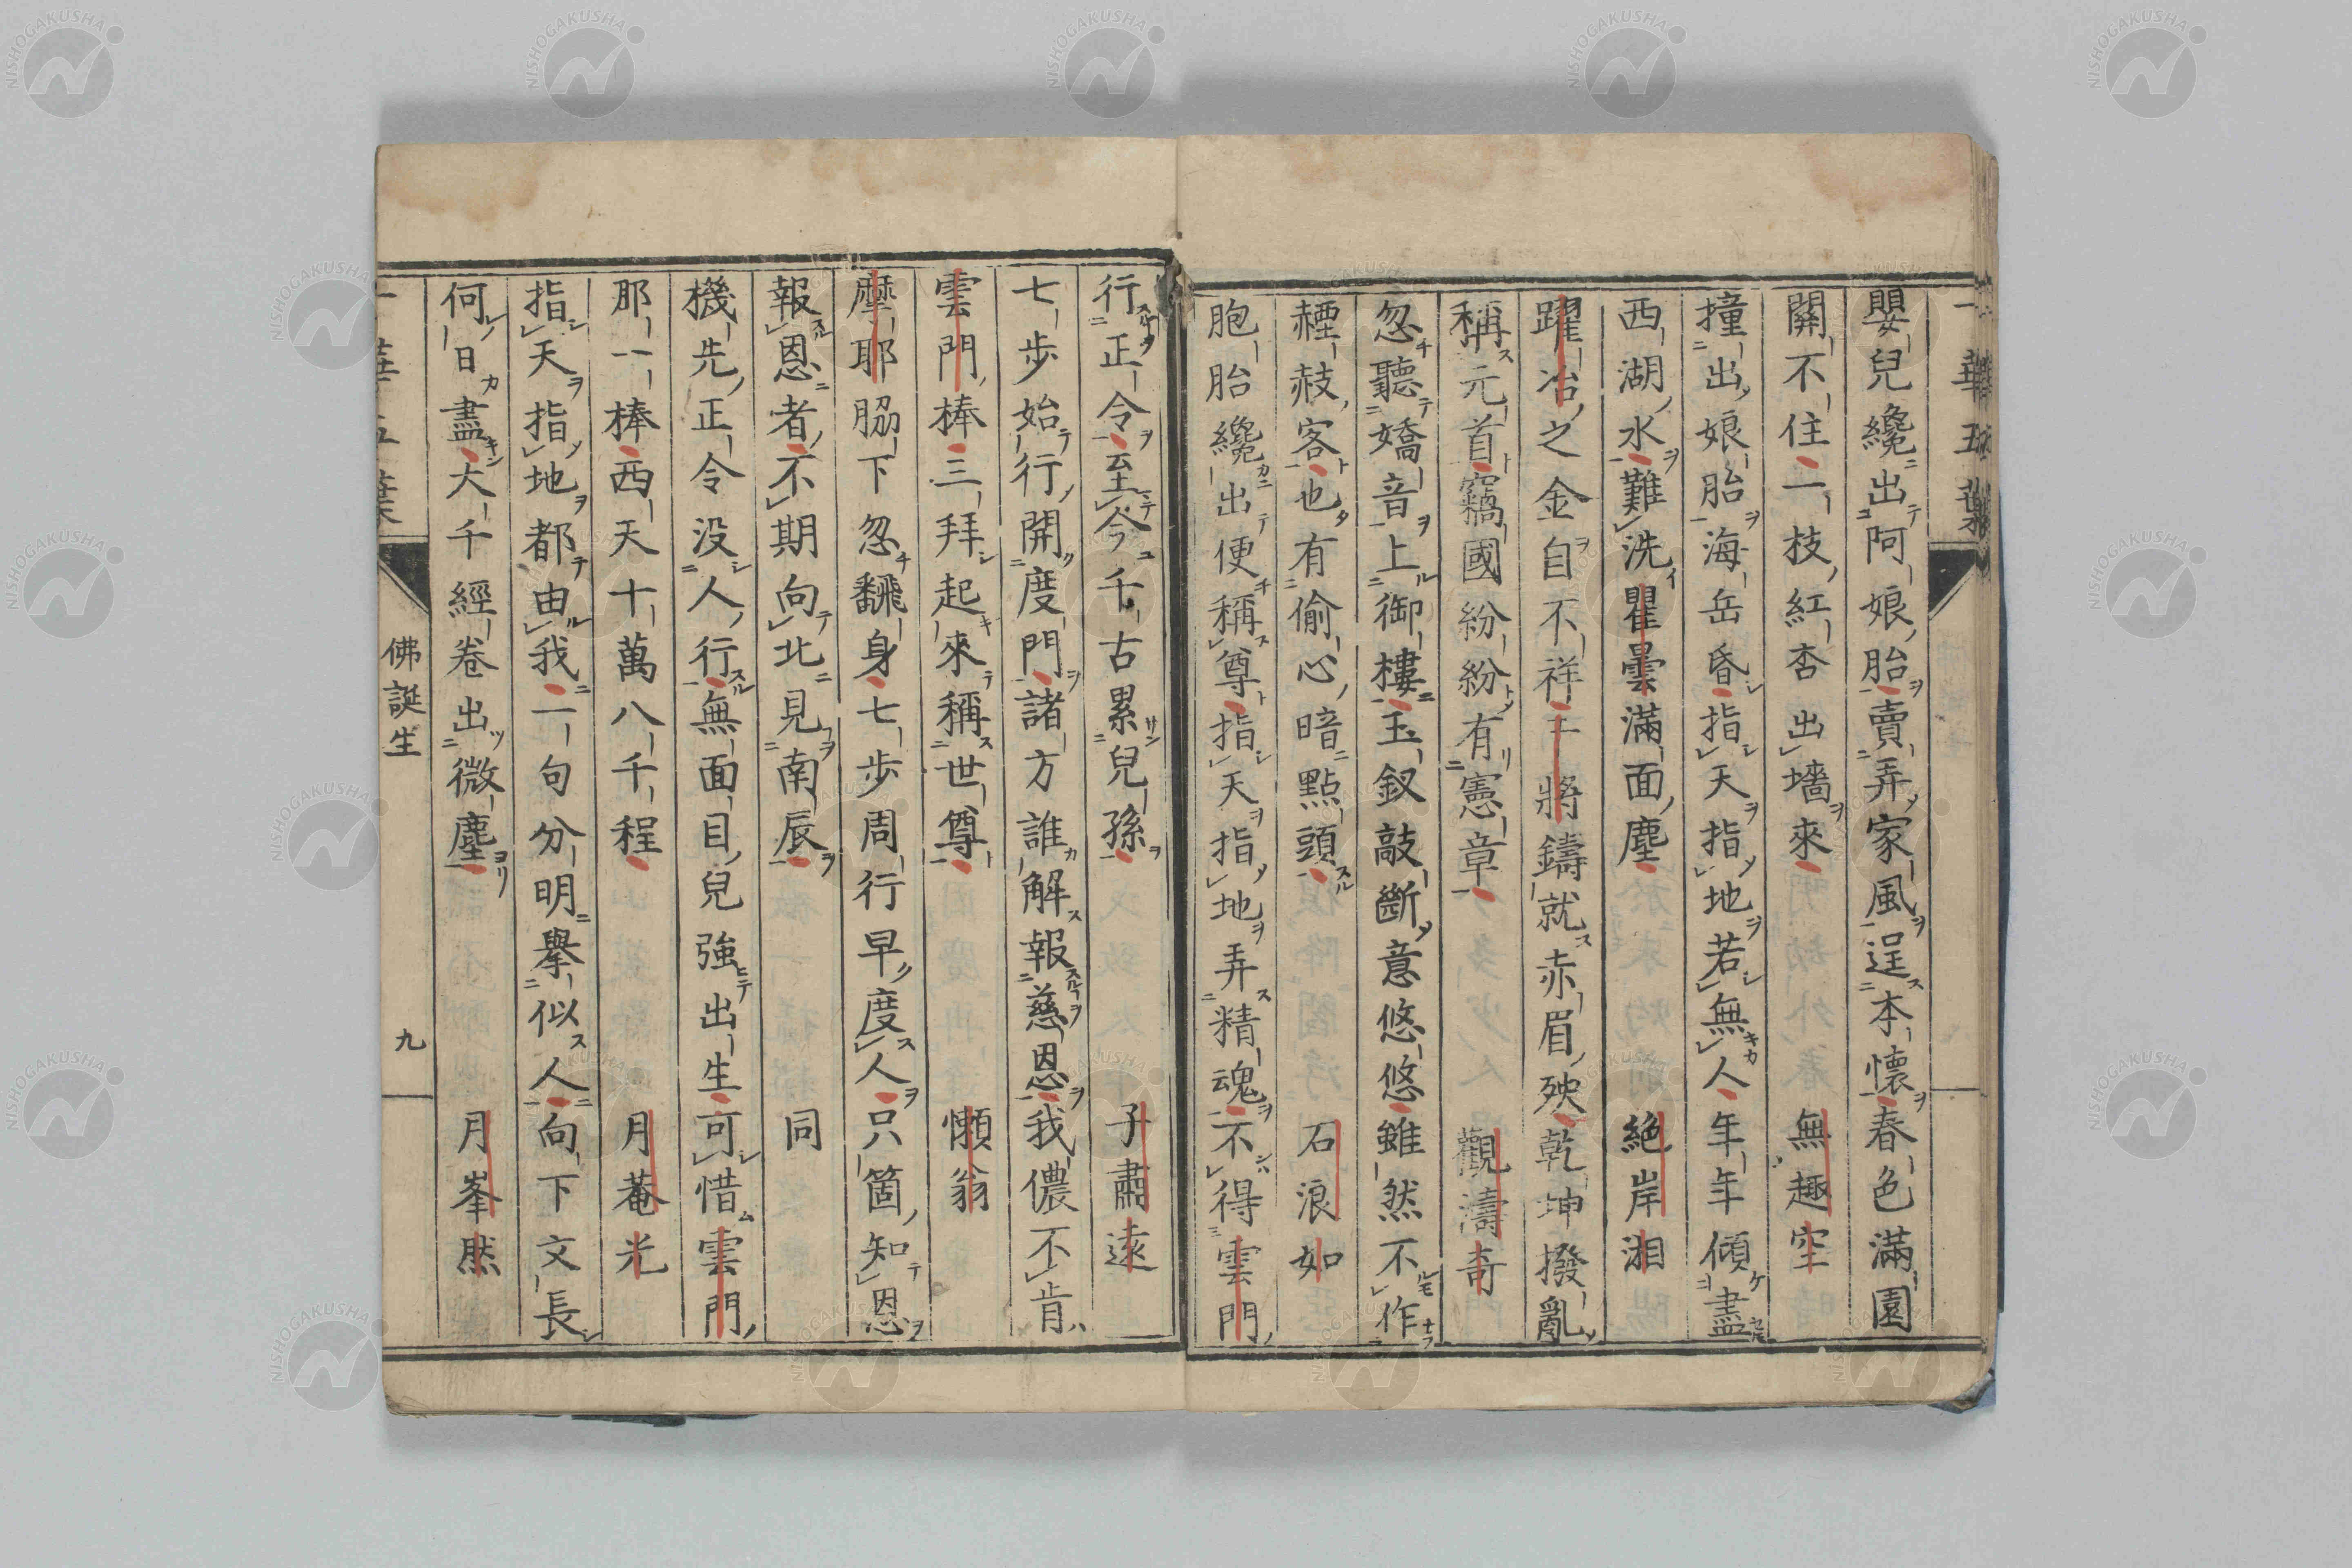 嬰兒纔出阿娘胎賣弄家風逞本懷春色滿園
關不住一枝紅杏出墻來 無趣空
撞出娘胎海岳昏指天指地若無人年年傾盡
西湖水難洗瞿曇滿面塵 絶岸湘
躍冶之金自不祥干將鑄就赤眉殃乾坤撥亂
稱元首竊國紛紛有憲章 觀濤奇
忽聽嬌音上御樓玉釵敲斷意悠悠雖然不作
敲客也有偷心暗點頭 石浪如
胞胎纔出便稱尊指天指地弄精魂不得雲門
行正令至今千古累兒孫 子肅遠
七步始行開度門諸方誰解報慈恩我儂不肯
雲門棒三拜起來稱世尊 懶翁
摩耶脇下忽飜身七步周行早度人只箇知恩
報恩者不期向北見南辰 同
機先正令没人行無面目兒強出生可惜雲門
那一棒西天十萬八千程 月菴光
指天指地都由我一句分明舉似人向下文長
何日盡大千經卷出微塵 月峯
佛誕生
九